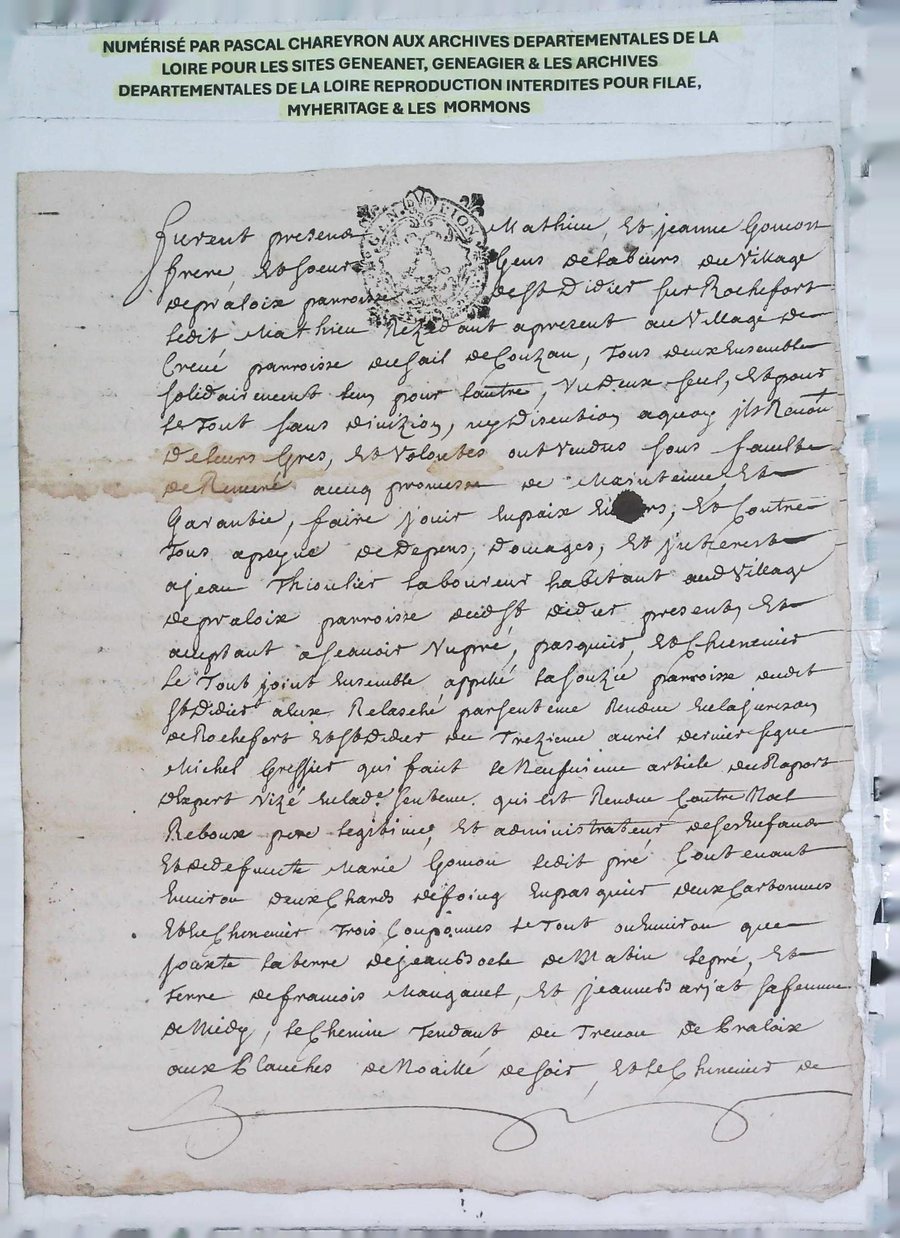 NUMÉRISÉ PAR PASCAL CHAREYRON AUX ARCHIVES DEPARTEMENTALES DE LA
LOIRE POUR LES SITES GENEANET, GENEAGIER & LES ARCHIVES
DEPARTEMENTALES DE LA LOIRE REPRODUCTION INTERDITES POUR FILAE,
MYHERITAGE & LES MORMONS
GEN. DE LION
furent presend Mathieu, Et jeanne Gomon
frere Et Soeur Gens de labeurs du Village
de praloix parroisse de St Didier sur Rochefort
Ledit Mathieu Rezidant apresent au Village de
Creué parroisse du sail de Couzan, Tous deux Ensemble
solidairement lun pour lautre, Vn deux seul, Et pour
le Tout sans diuizion, ny disention aquoy jls Renon
De leurs Gres, Et Volontes ont Vendus sous faculte
de Remeré aueq promesse de Maintenir Et
Garantie, faire jouir Enpaix Enuers, Et Contre
Tous apeyne de Depens, Domages, Et jnterest
ajean Thioulier laboureur habitant aud Village
de praloix parroisse dudt St didier present Et
aceptant asçauoir Vnpré, pasquier, Et Chenevier
Le Tout joint Ensemble appellé lasouzie parroisse dudit
St Didier aEux Relasché par sentence Rendue En la jurizon
de Rochefort Et St Didier du Trezieme auril dernier signe
Michel Greffier qui fait le Neufuieme article du Raport
dExpert Vizé En lade. sentence. qui Est Rendue Contre Noel
Reboux pere legitime, Et administrateur de ses Enfands
Et de defuncte Marie Gomon Ledit pré Contenant
Enuiron deux Chards de foing Enpasquier deux Cartonnees
Et le Chenevier Trois Couponnes le Tout ou Enuiron que
jouxte la terre de jean de Matin le pré, Et
Terre de francois Et jeanne Barjat sa femme
de Midy, le Chemin Tendant du Treuou de Praloix
aux Planches de Noaillé de soir, Et le Chenevier de